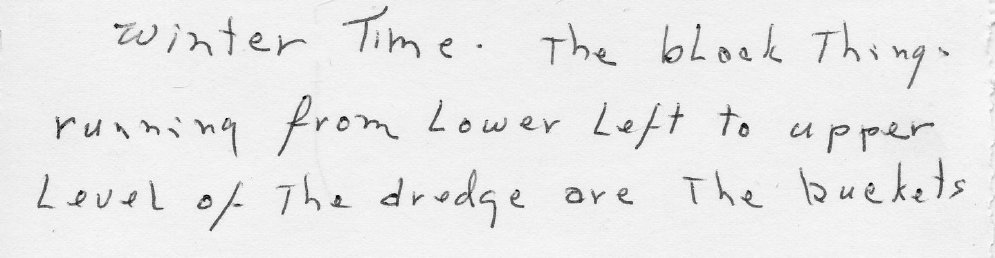 Winter Time. The black Things
running from Lower Left to upper
Level of The dredge are The buckets